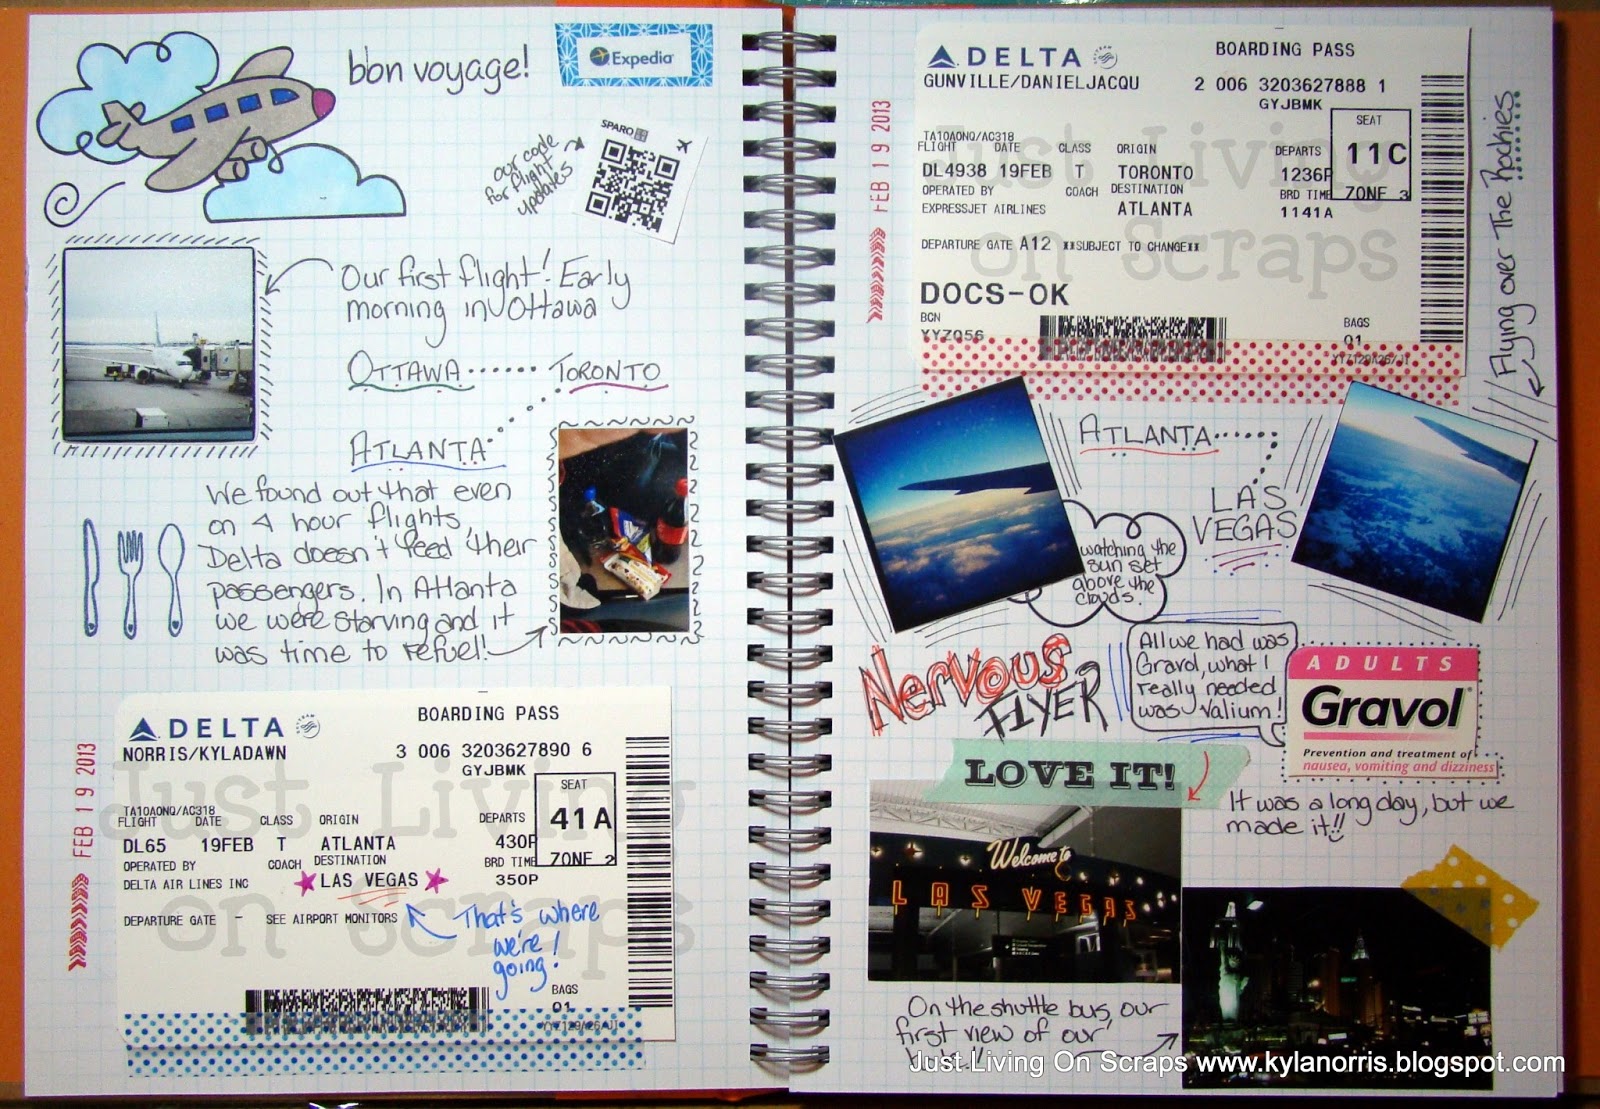 bon voyage!
Expedia
SPARQ
our code
for flight
updates
Our first flight! Early
morning in Ottawa
OTTAWA ...... TORONTO
ATLANTA
We found out that even
on 4 hour flights,
Delta doesn't feed their
passengers. In Atlanta
we were starving and it
was time to refuel!
FEB 19 2013
DELTA
BOARDING PASS
NORRIS/KYLADAWN
3 006 3203627890 6
GYJBMK
TA10AONQ/AC318
SEAT
41A
ZONE 2
FLIGHT DATE CLASS ORIGIN DEPARTS
DL65 19FEB T ATLANTA 430P
OPERATED BY COACH DESTINATION BRD TIME
DELTA AIR LINES INC LAS VEGAS 350P
DEPARTURE GATE - SEE AIRPORT MONITORS
That's where
we're
going!
BAGS
01
Just Living
on Scraps
FEB 19 2013
DELTA
BOARDING PASS
GUNVILLE/DANIELJACQU
2 006 3203627888 1
GYJBMK
TA10AONQ/AC318
SEAT
11C
ZONE 3
FLIGHT DATE CLASS ORIGIN DEPARTS
DL4938 19FEB T TORONTO 1236P
OPERATED BY COACH DESTINATION BRD TIME
EXPRESSJET AIRLINES ATLANTA 1141A
DEPARTURE GATE A12 **SUBJECT TO CHANGE**
DOCS-OK
BCN
YYZ056
BAGS
01
Just Living
on Scraps
Flying over The Rockies
ATLANTA
LAS
VEGAS
watching the
sun set
above the
clouds.
Nervous
FLYER
All we had was
Gravol, what I
really needed
was Valium!
ADULTS
Gravol
Prevention and treatment of
nausea, vomiting and dizziness
LOVE IT!
It was a long day, but we
made it!!
Welcome to
LAS VEGAS
On the shuttle bus, our
first view of our
Just Living On Scraps www.kylanorris.blogspot.com